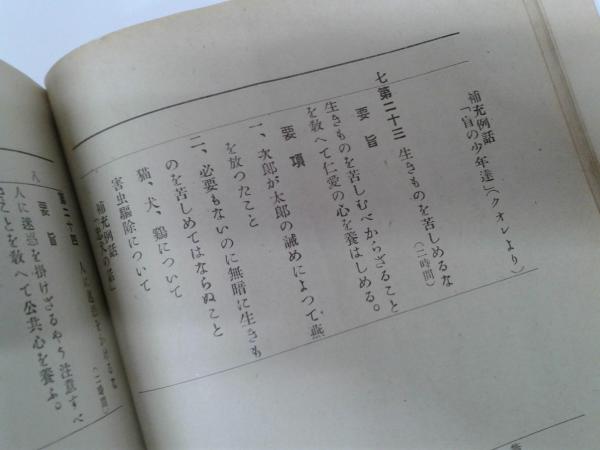 補充例話
「盲の少年達」(クオレより)
七 第二十三 生きものを苦しめるな
(二時間)
要旨
生きものを苦しむべからざること
を教へて仁愛の心を養はしめる。
要項
一、次郎が太郎の誡めによつて、燕
を放つたこと
二、必要もないのに無暗に生きも
のを苦しめてはならぬこと
猫、犬、鶏について
害虫駆除について
補充例話
八 第二十四 人に迷惑をかけるな
(二時間)
要旨
人に迷惑を掛けざるやう注意すべ
きことを教へて公共心を養ふ。